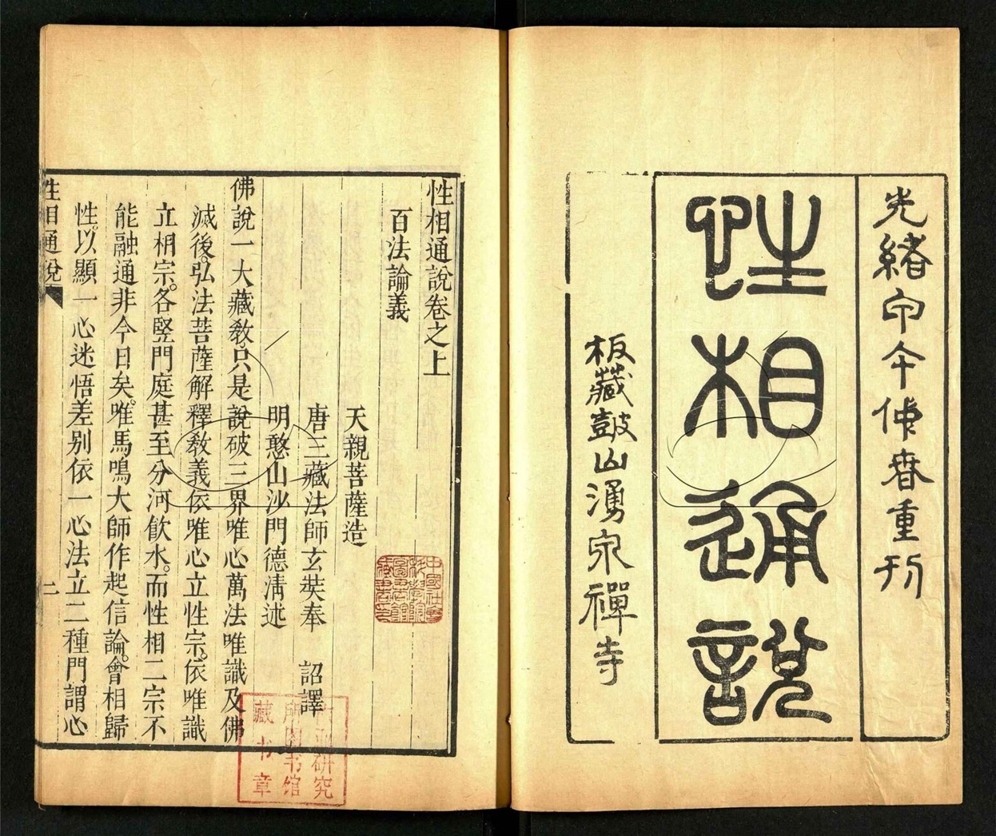 光緒丙午仲春重刋
性相通說
板藏鼓山湧泉禪寺
性相通說卷之上
百法論義
天親菩薩造
唐三藏法師玄奘奉 詔譯
明憨山沙門德清述
佛說一大藏教。只是說破三界唯心萬法唯識及佛
滅後。弘法菩薩解釋教義依唯心立性宗。依唯識
立相宗。各竪門庭甚至分河飲水。而性相二宗不
能融通非今日矣。唯馬鳴大師作起信論。會相歸
性。以顯一心迷悟差別依一心法立二種門謂心
性相通說 二
研究
所图书馆
藏书章